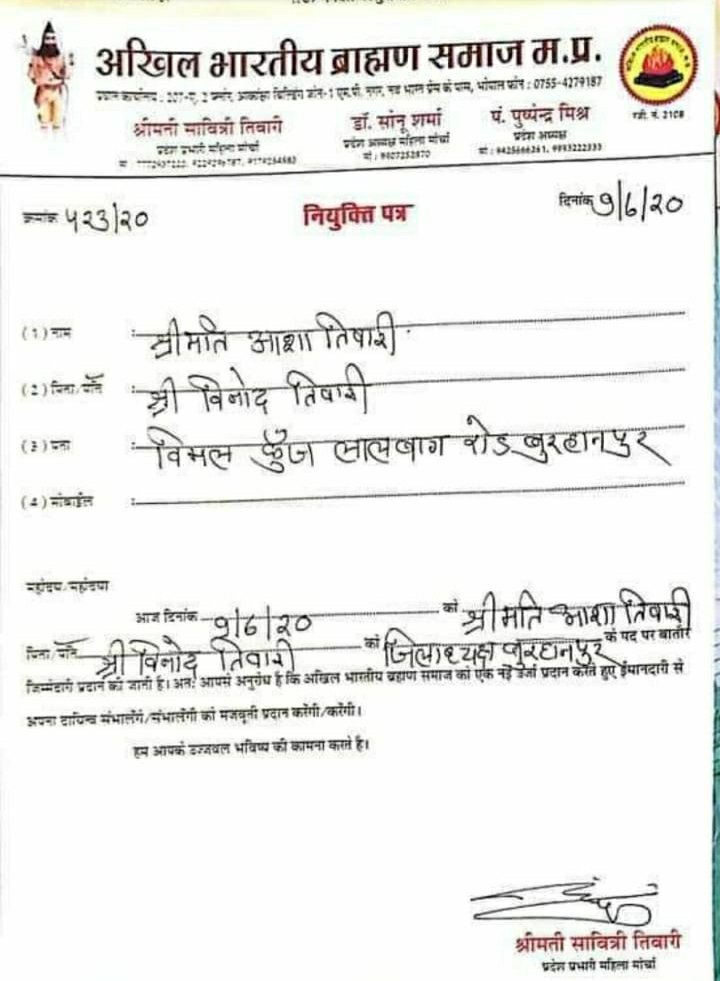 अखिल भारतीय ब्राह्मण समाज म.प्र.
प्रधान कार्यालय : 207-ए, 2 फ्लोर, आकांक्षा बिल्डिंग जोन-1 एम.पी. नगर, नव भारत प्रेस के पास, भोपाल फोन : 0755-4279187
रजी. नं. 2108
श्रीमती सावित्री तिवारी
प्रदेश प्रभारी महिला मोर्चा
डॉ. सोनू शर्मा
प्रदेश अध्यक्ष महिला मोर्चा
मो. : 9407252870
पं. पुष्पेन्द्र मिश्र
प्रदेश अध्यक्ष
मो. : 9425666261, 9993222333
क्रमांक ५२३/२०
नियुक्ति पत्र
दिनांक 9/6/२०
(1) नाम : श्रीमति आशा तिवारी
(2) पिता/पति : श्री विनोद तिवारी
(3) पता : विमल कुँज लालबाग रोड बुरहानपुर
(4) मोबाईल :
महोदय/महोदया
आज दिनांक 9/6/२० को श्रीमति आशा तिवारी
पिता/पति श्री विनोद तिवारी को जिलाध्यक्ष बुरहानपुर के पद पर बातौर
जिम्मेदारी प्रदान की जाती है। अतः आपसे अनुरोध है कि अखिल भारतीय ब्रहाण समाज को एक नई उर्जा प्रदान करते हुए ईमानदारी से
अपना दायित्व संभालेंगे/संभालेंगी को मजबूती प्रदान करेंगी/करेंगी।
हम आपके उज्जवल भविष्य की कामना करते है।
श्रीमती सावित्री तिवारी
प्रदेश प्रभारी महिला मोर्चा